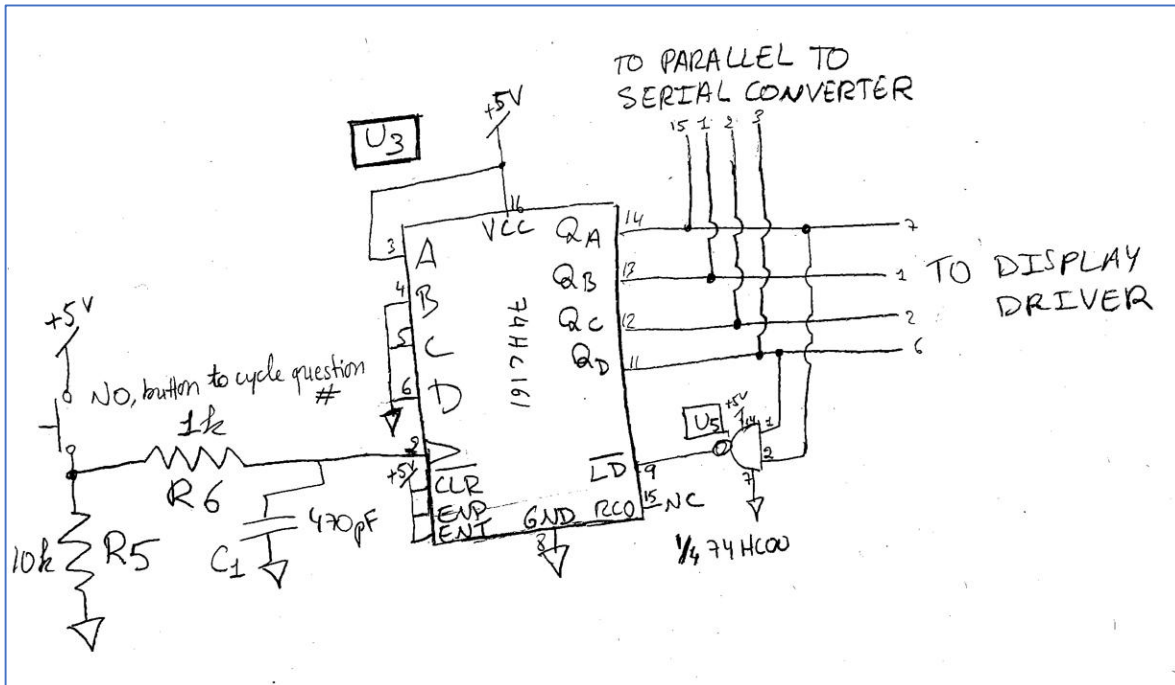 TO PARALLEL TO
SERIAL CONVERTER
15 1 2 3
+5V
U3
16
VCC
3 A
4 B
5 C
6 D
74HC161
QA 14
QB 13
QC 12
QD 11
7
1
2
6
TO DISPLAY
DRIVER
+5V
NO, button to cycle question
#
1k
R6
10k
R5
C1
470pF
+5V
CLR
ENP
ENT
GND
8
LD
9
RCO
15
NC
U5
+5V
14
1
2
7
1/4 74HC00